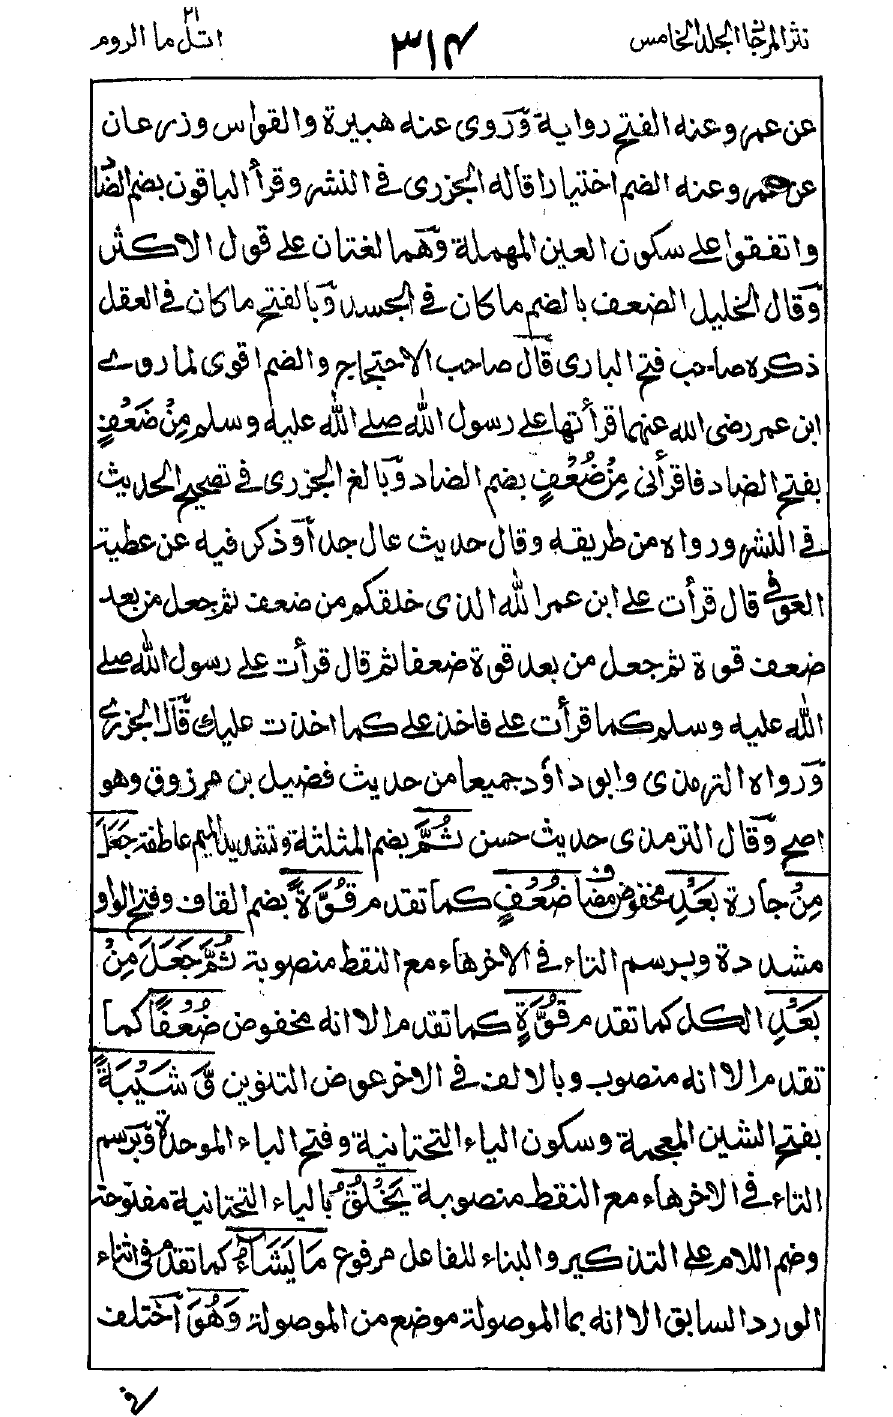 نثر المرجان الجلد الخامس
٣١٤
اتل ما ٢١ الروم
عن عمرو عنه الفتح رواية وَروى عنه هبيرة والقواس وزرعان
عن عمرو عنه الضم اختيارا قاله الجزرى فى النشر وقرأ الباقون بضم الضاد
واتفقوا على سكون العين المهملة وَهما لغتان على قول الاكثر
وَقال الخليل الضعف بالضم ما كان فى الجسد وَبالفتح ما كان فى العقل
ذكره صاحب فتح البارى قال صاحب الاحتجاج والضم اقوى لما روے
ابن عمر رضى الله عنهما قرأتها على رسول الله صلے الله عليه وسلم مِنْ ضَعْفٍ
بفتح الضاد فاقرأنى مِنْ ضُعْفٍ بضم الضاد وَبالغ الجزرى فى تصحيح الحديث
فى النشر ورواه من طريقه وقال حديث عال جدا وَذكر فيه عن عطية
العوفى قال قرأت على ابن عمر الله الذى خلقكم من ضعف ثم جعل من بعد
ضعف قوة ثم جعل من بعد قوة ضعفا ثم قال قرأت على رسول الله صلے
الله عليه وسلم كما قرأت على فاخذ على كما اخذت عليك قال الجزرے
وَرواه الترمذى وابو داؤد جميعا من حديث فضيل بن مرزوق وهو
اصح وَقال الترمذى حديث حسن ثُمَّ بضم المثلثة وتشديد الميم عاطفة جَعَلَ
مِنْ جارة بَعْدِ مخفوض مضاف ضُعْفٍ كما تقدم قُوَّةً بضم القاف وفتح الواو
مشددة وبرسم التاء فى الاخر هاء مع النقط منصوبة ثُمَّ جَعَلَ مِنْ
بَعْدِ الكل كما تقدم قُوَّةٍ كما تقدم الا انه مخفوض ضُعْفًا كما
تقدم الا انه منصوب وبالالف فى الاخر عوض التنوين وَّ شَيْبَةً
بفتح الشين المعجمة وسكون الياء التحتانية وفتح الباء الموحدة وَبرسم
التاء فى الاخر هاء مع النقط منصوبة يَخْلُقُ بالياء التحتانية مفتوحة
وضم اللام على التذكير والبناء للفاعل مرفوع مَا يَشَآءُ كما تقدم فى اثناء
الورد السابق الا انه بما الموصولة موضع من الموصولة وَهُوَ اختلف
فى